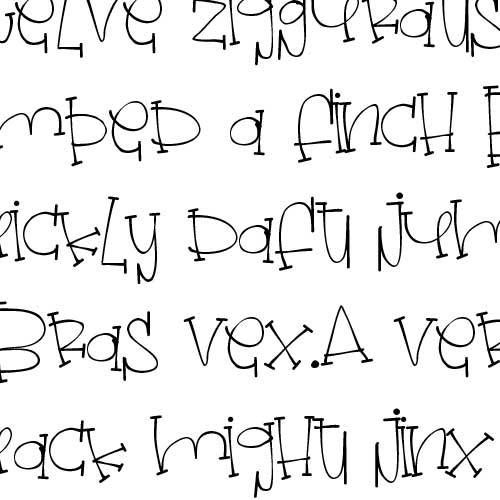 welve ziggurats
mped a finch B
ickly daft jum
Bras vex.A ver
eack might jinx